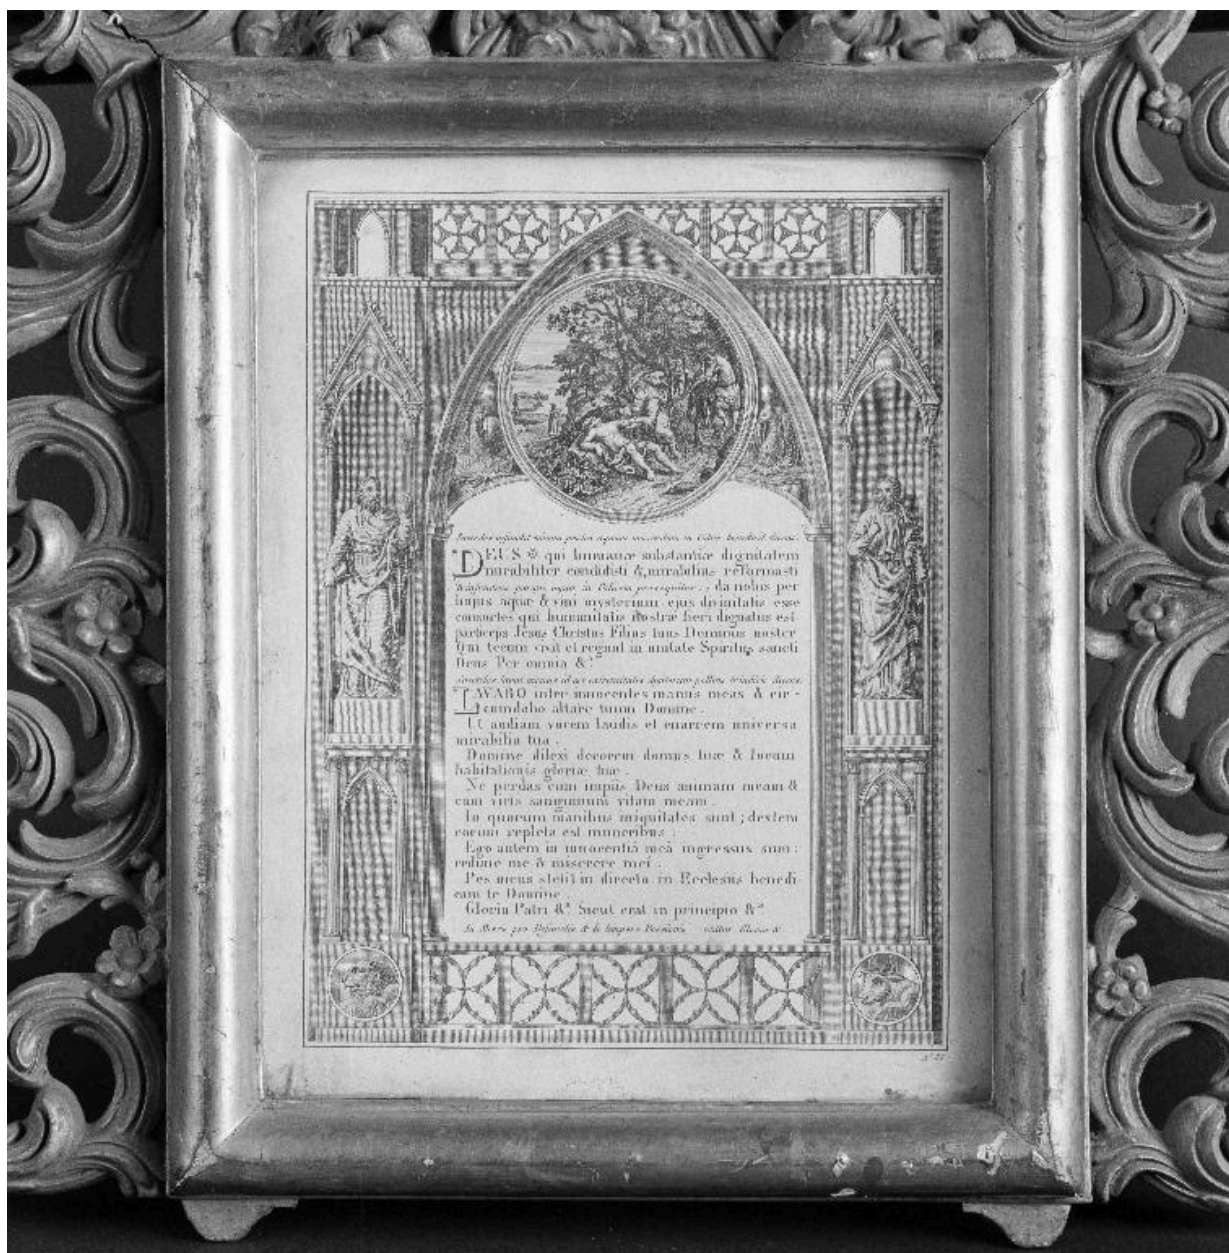 DEUS ✠ qui humanæ substantiæ dignitatem
mirabiliter condidisti & mirabilius reformasti
da nobis per
hujus aquæ & vini mysterium ejus divinitatis esse
consortes qui humanitatis nostræ fieri dignatus est
particeps Jesus Christus Filius tuus Dominus noster
Qui tecum vivit et regnat in unitate Spiritus sancti
Deus Per omnia &ª
LAVABO inter innocentes manus meas & cir-
cumdabo altare tuum Domine.
Ut audiam vocem laudis et enarrem universa
mirabilia tua.
Domine dilexi decorem domus tuæ & locum
habitationis gloriæ tuæ.
Ne perdas cum impiis Deus animam meam &
cum viris sanguinum vitam meam.
In quorum manibus iniquitates sunt; dextera
eorum repleta est muneribus:
Ego autem in innocentiâ meâ ingressus sum:
redime me & miserere mei.
Pes meus stetit in directo, in Ecclesiis benedi-
cam te Domine
Gloria Patri &ª Sicut erat in principio &ª